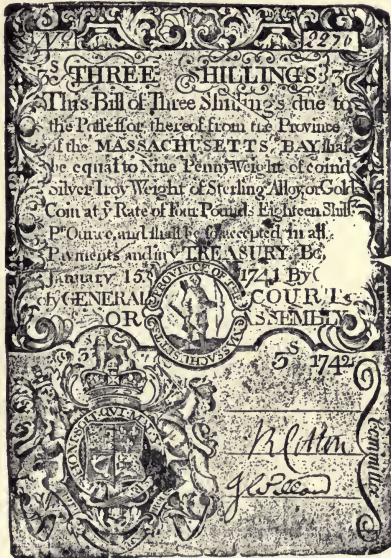 No 2270
3S THREE SHILLINGS 3
This Bill of Three Shillings due to
the Possessor thereof from the Province
of the MASSACHUSETTS BAY shall
be equal to Nine Penny Weight of coind
Silver Troy Weight of Sterling Alloy, or Gold
Coin at ye Rate of Four Pounds Eighteen Shills
Pr Ounce, and shall be so accepted in all
Payments and in ye TREASURY. Bo
January 15 1741 By
of GENERAL COURT
OR ASSEMBLY
PROVINCE OF THE MASSACHUSETTS
3S 1742
HONI SOIT QUI MAL Y
R Cotton
committee